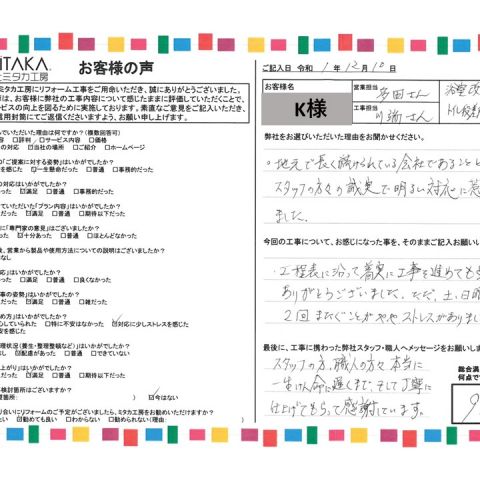 ITAKA
ミタカ工房
お客様の声
ミタカ工房にリフォーム工事をご用命いただき、誠にありがとうございました。
は、お客様に弊社の工事内容について感じたままに評価していただくことで、
ービスの向上を図るために実施しております。素直なご意見をご記入いただき、
信用封筒にてご返信くださいますよう、お願い申し上げます。
んでいただいた理由は何ですか?(複数回答可)
内容 □評判 □サービス内容 □価格
□当社の場所 □ご紹介 □ホームページ
の「ご提案に対する姿勢」はいかがでしたか?
を感じた □一生懸命だった □普通 □事務的だった
の対応はいかがでしたか?
った □満足 □普通 □事務的だった
ていただいた「プラン内容」はいかがでしたか?
った □満足 □普通 □期待以下だった
に「専門家の意見」はございましたか?
た □十分あった □普通 □ほとんどなかった
後、営業から製品や使用方法についての説明はございましたか?
なし
応」はいかがでしたか?
□満足 □普通 □良くなかった
事の姿勢」はいかがでしたか?
った □満足 □普通 □雑だった
め方」はいかがでしたか?
□特に不安はなかった □対応に少しストレスを感じた
安を感じた
理状況(養生・整理整頓など)」はいかがでしたか?
□配慮があった □できていない
上がり」はいかがでしたか?
った □満足 □普通 □期待以下だった
検討箇所はございますか?
箇所: ) □今はない
り合いにリフォームのご予定がございましたら、ミタカ工房をお勧めいただけますか?
□勧めても良い □わからない □勧められない(理由: )
ご記入日 令和 1年 12月 18日
お客様名
K様
営業担当
多田さん
工事担当
川端さん
弊社をお選びいただいた理由をお聞かせください。
・地元で長く続けられている会社であることと
スタッフの方々の誠実で明るい対応に惹
ました。
今回の工事について、お感じになった事を、そのままご記入お願い
・工程表に沿って着実に工事を進めてもら
ありがとうございました。ただ、土、日
2回またぐことがややストレスがありまし
最後に、工事に携わった弊社スタッフ・職人へメッセージをお願いしま
スタッフの方、職人の方々本当に
一生けん命に遅くまで、そして丁寧に
仕上げてもらって感謝しています。
総合満
何点で
9